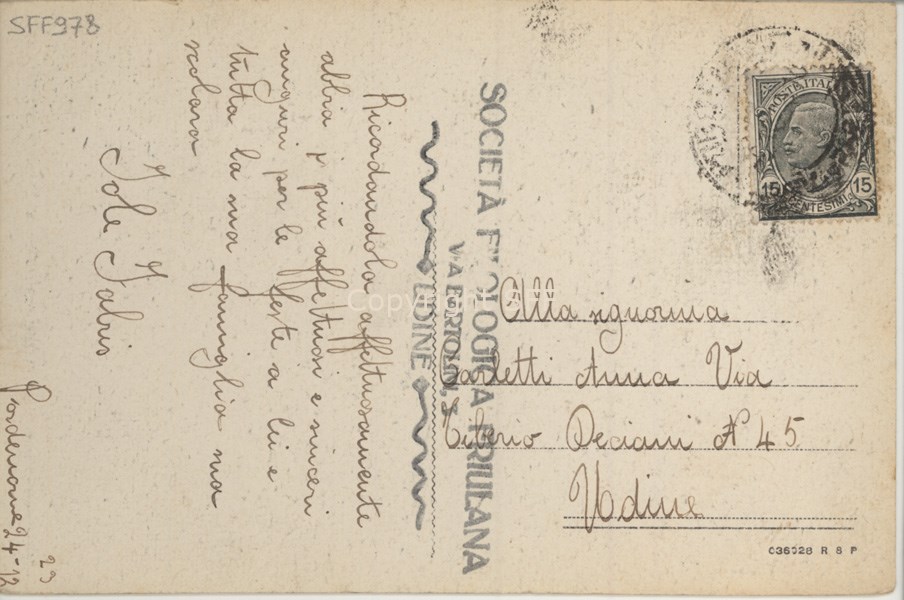 SFF978
Ricordandola affettuosamente
abbia i più affettuosi e sinceri
auguri per le feste a lei e
tutta la sua famiglia sua
scolara
Iole Falus
Pordenone 24-12
23
SOCIETÀ FILOLOGICA FRIULANA
VIA BARTOLINI, 3
UDINE
POSTE ITALIANE
15 15
CENTESIMI
Alla signorina
Carletti Anna Via
Tiberio Deciani N 45
Udine
036928 R 8 P
Copyright